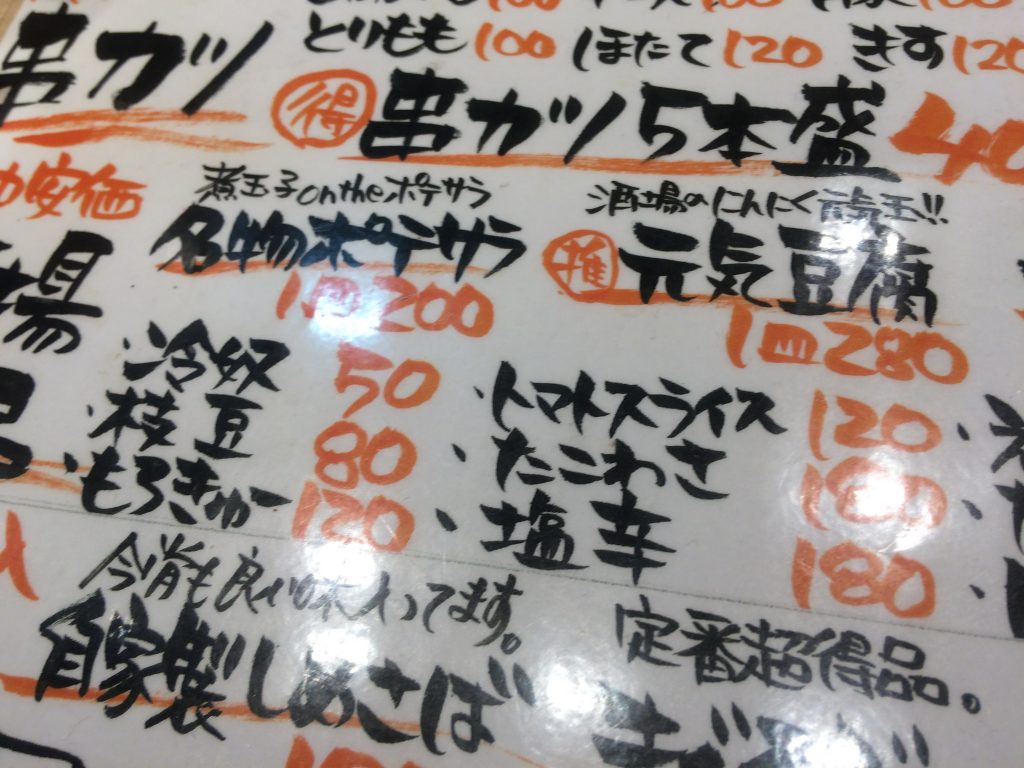 串カツ
とりもも 100 ほたて 120 きす 120
得 串カツ5本盛
安価
煮玉子 on the ポテサラ
名物ポテサラ
1皿200
酒場のにんにく
推 元気豆腐
1皿280
場
・冷奴 50
・枝豆 80
・もろきゅー 120
・トマトスライス 120
・たこわさ 180
・塩辛 180
今宵も良い味入ってます。
自家製しめさば
定番超得品。